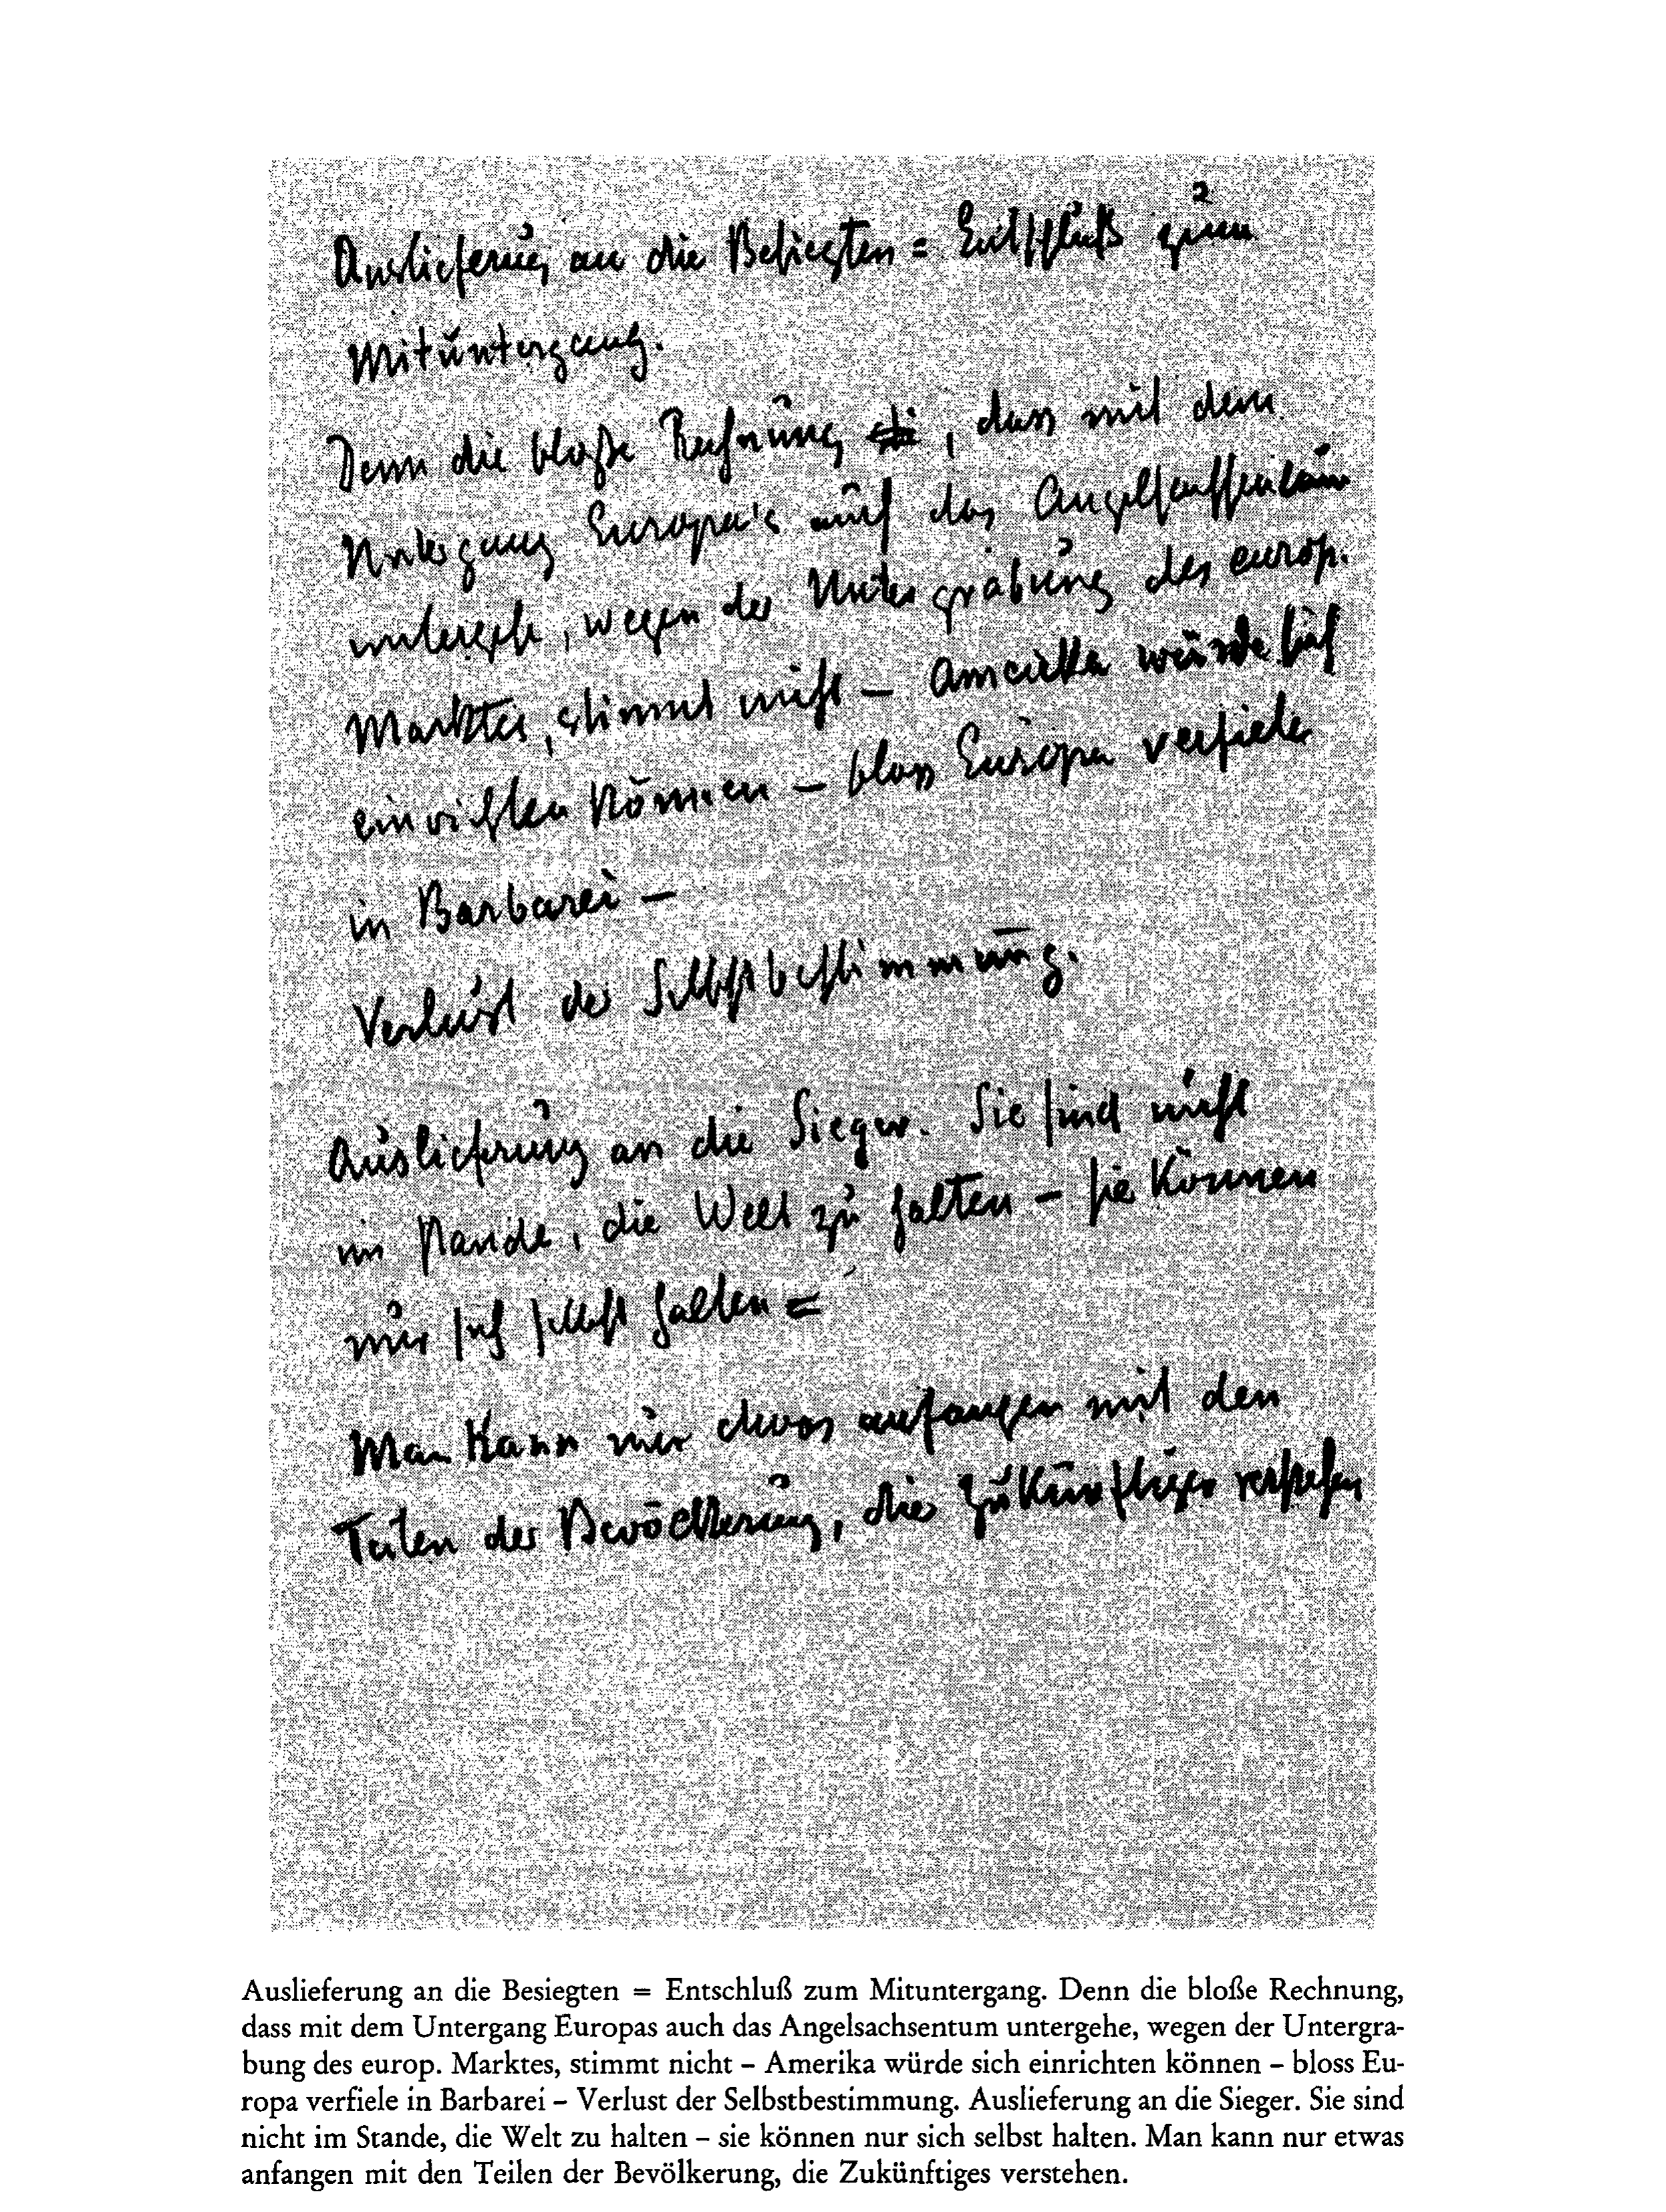 Auslieferung an die Besiegten = Entschluß zum
Mituntergang.
Denn die bloße Rechnung, dass mit dem
Untergang Europa's auch das Angelsachsentum
untergehe, wegen der Untergrabung des europ.
Marktes, stimmt nicht – Amerika würde sich
einrichten können – bloss Europa verfiele
in Barbarei –
Verlust der Selbstbestimmung.
Auslieferung an die Sieger. Sie sind nicht
im Stande, die Welt zu halten – sie können
nur sich selbst halten =
Man kann nur etwas anfangen mit den
Teilen der Bevölkerung, die Zukünftiges verstehen
Auslieferung an die Besiegten = Entschluß zum Mituntergang. Denn die bloße Rechnung,
dass mit dem Untergang Europas auch das Angelsachsentum untergehe, wegen der Untergra-
bung des europ. Marktes, stimmt nicht – Amerika würde sich einrichten können – bloss Eu-
ropa verfiele in Barbarei – Verlust der Selbstbestimmung. Auslieferung an die Sieger. Sie sind
nicht im Stande, die Welt zu halten – sie können nur sich selbst halten. Man kann nur etwas
anfangen mit den Teilen der Bevölkerung, die Zukünftiges verstehen.